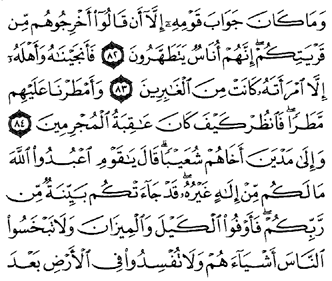 وَمَا كَانَ جَوَابَ قَوْمِهِۦٓ إِلَّآ أَن قَالُوٓا۟ أَخْرِجُوهُم مِّن
قَرْيَتِكُمْ ۖ إِنَّهُمْ أُنَاسٌ يَتَطَهَّرُونَ ٨٢ فَأَنجَيْنَـٰهُ وَأَهْلَهُۥٓ
إِلَّا ٱمْرَأَتَهُۥ كَانَتْ مِنَ ٱلْغَـٰبِرِينَ ٨٣ وَأَمْطَرْنَا عَلَيْهِم
مَّطَرًا ۖ فَٱنظُرْ كَيْفَ كَانَ عَـٰقِبَةُ ٱلْمُجْرِمِينَ ٨٤
وَإِلَىٰ مَدْيَنَ أَخَاهُمْ شُعَيْبًا ۗ قَالَ يَـٰقَوْمِ ٱعْبُدُوا۟ ٱللَّهَ
مَا لَكُم مِّنْ إِلَـٰهٍ غَيْرُهُۥ ۖ قَدْ جَآءَتْكُم بَيِّنَةٌ مِّن
رَّبِّكُمْ ۖ فَأَوْفُوا۟ ٱلْكَيْلَ وَٱلْمِيزَانَ وَلَا تَبْخَسُوا۟
ٱلنَّاسَ أَشْيَآءَهُمْ وَلَا تُفْسِدُوا۟ فِى ٱلْأَرْضِ بَعْدَ